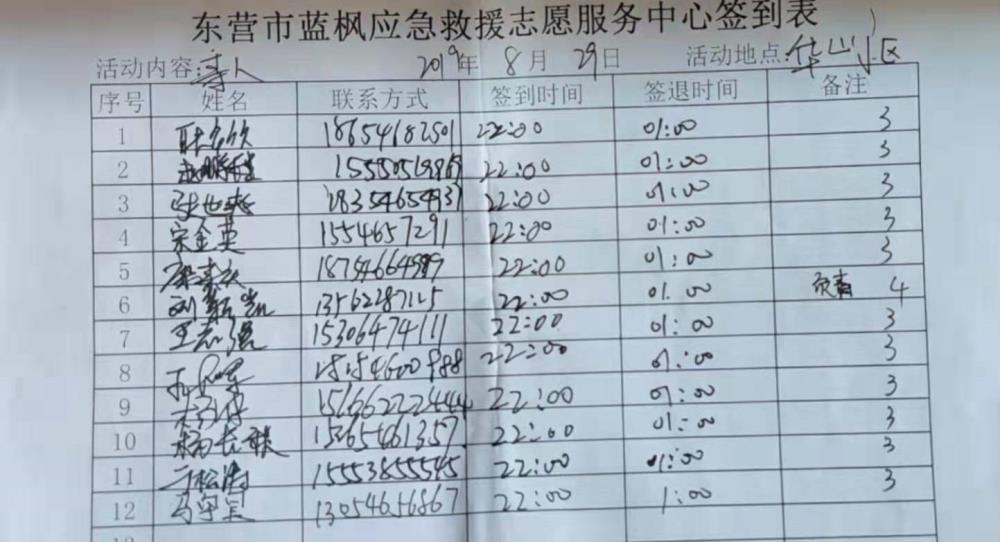 东营市蓝枫应急救援志愿服务中心签到表
活动内容:寻人 2019年 8月 29日 活动地点:华山小区
序号 姓名 联系方式 签到时间 签退时间 备注
1 18654682501 22:00 01:00 3
2 22:00 01:00 3
3 18354654937 22:00 01:00 3
4 宋金英 1554657291 22:00 01:00 3
5 22:00 01:00 3
6 22:00 01:00 负责 4
7 王志强 15306474111 22:00 01:00 3
8 22:00 01:00 3
9 22:00 01:00 3
10 杨长联 15365461357 22:00 01:00 3
11 于松涛 15553855545 22:00 01:00 3
12 马守宝 13054656867 22:00 1:00 3